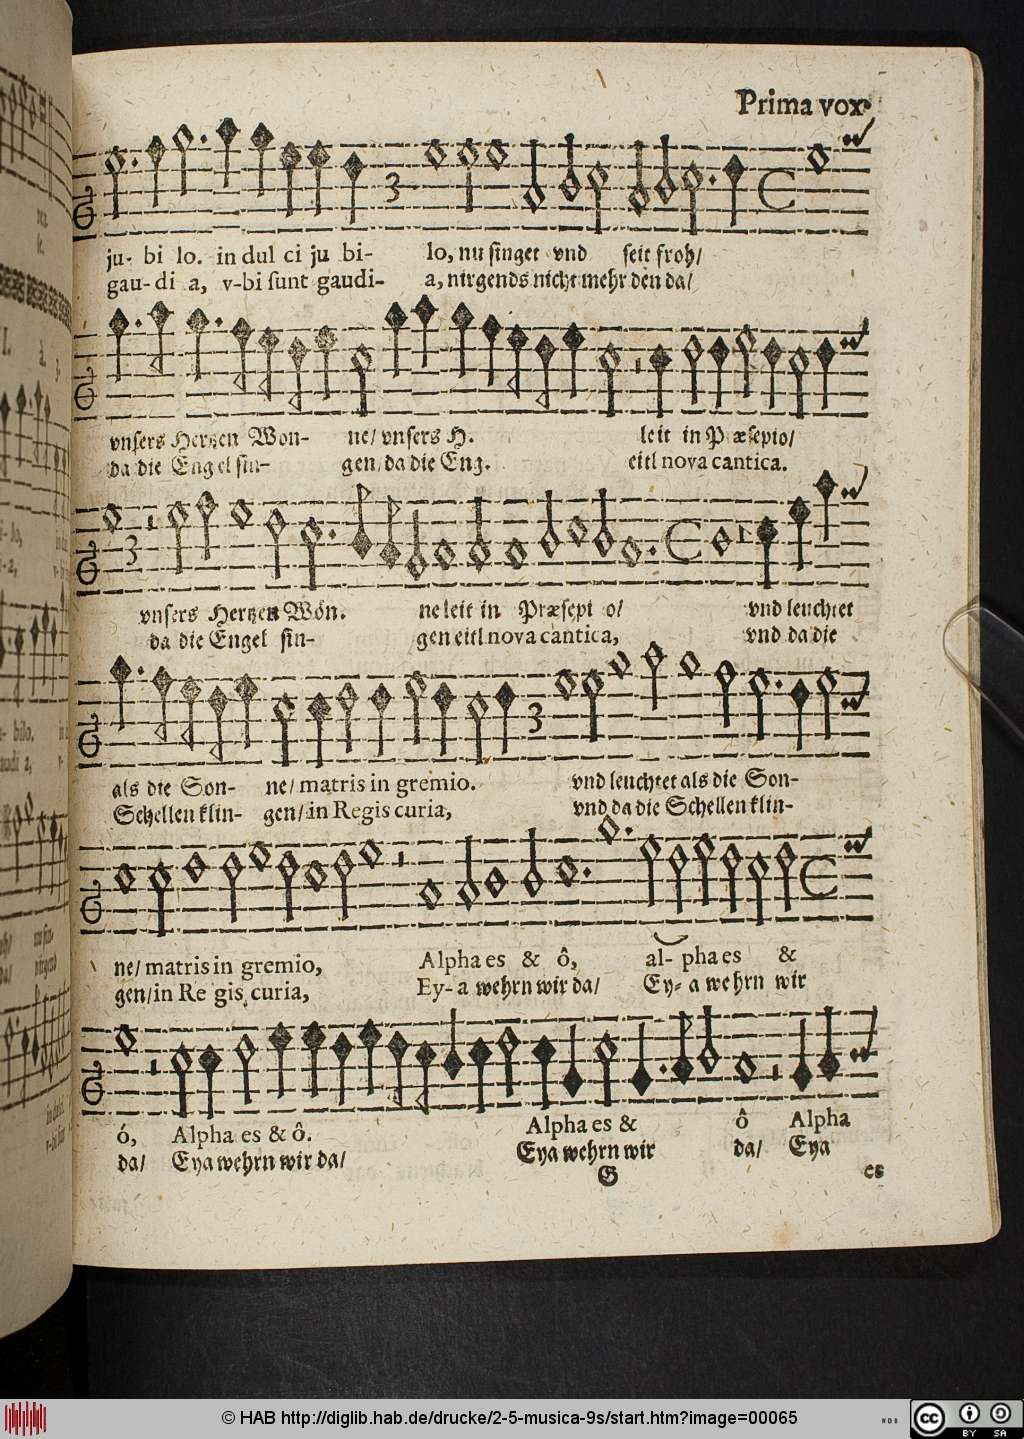 Prima vox
ju- bi lo. in dul ci ju bi- lo, nu singet vnd seit froh/
gau- di a, v-bi sunt gaudi- a, nirgends nicht mehr den da/
vnsers Hertzen Won- ne/ vnsers H. leit in Præsepio/
da die Engel sin- gen/ da die Eng. eitl nova cantica.
vnsers Hertzen Wön. ne leit in Præsepi o/ vnd leuchtet
da die Engel sin- gen eitl nova cantica, vnd da die
als die Son- ne/ matris in gremio. vnd leuchtet als die Son-
Schellen klin- gen/ in Regis curia, vnd da die Schellen klin-
ne/ matris in gremio, Alpha es & ô, al- pha es &
gen/ in Re gis curia, Ey- a wehrn wir da/ Ey- a wehrn wir
ó, Alpha es & ô. Alpha es & ô Alpha
da/ Eya wehrn wir da/ Eya wehrn wir da/ Eya
G es
© HAB http://diglib.hab.de/drucke/2-5-musica-9s/start.htm?image=00065
cc BY SA